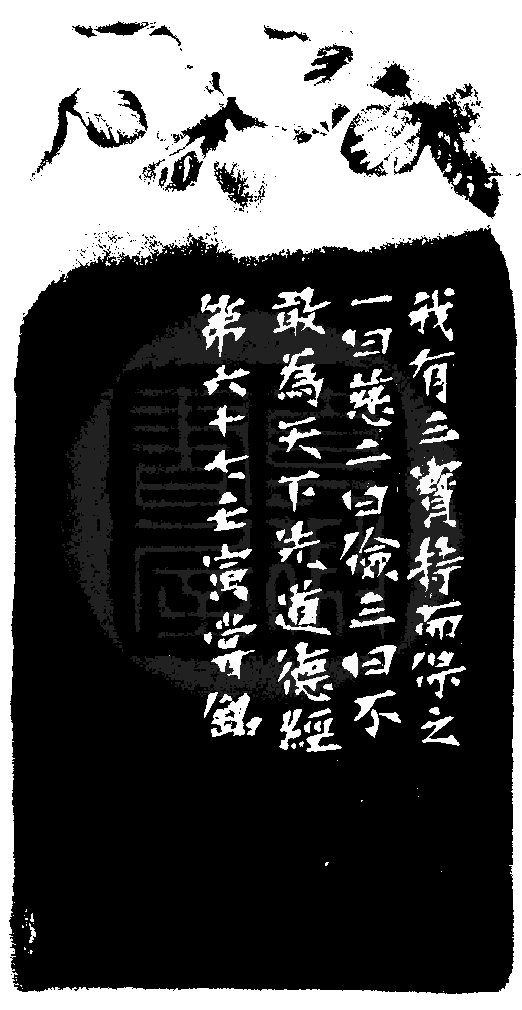 我有三寶持而保之
一曰慈二曰儉三曰不
敢為天下先道德經
第六十七壬寅銘